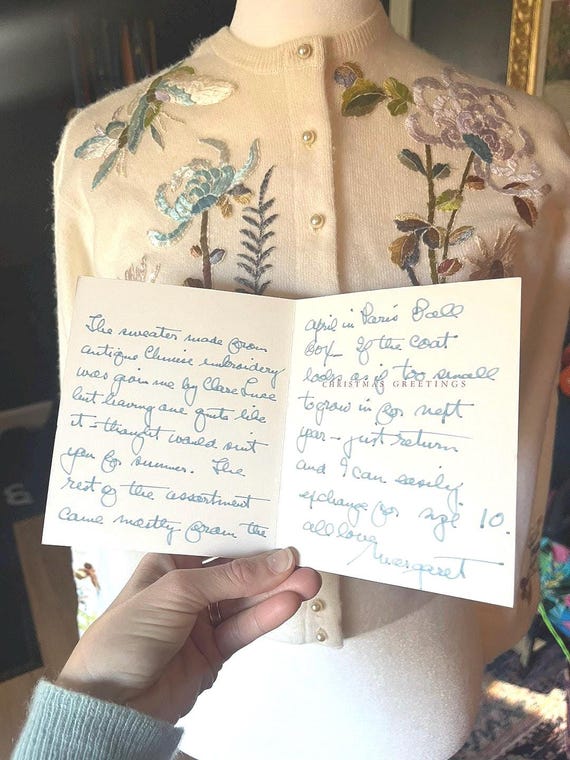 The sweater made from
antique Chinese embroidery
was given me by Clare Luce
but having one quite like
it - thought would suit
you for summer. The
rest of the assortment
came mostly from the
april in Paris Ball
box - If the coat
looks as if too small
CHRISTMAS GREETINGS
to grow in for next
year - just return
and I can easily
exchange for size 10.
all love
Margaret